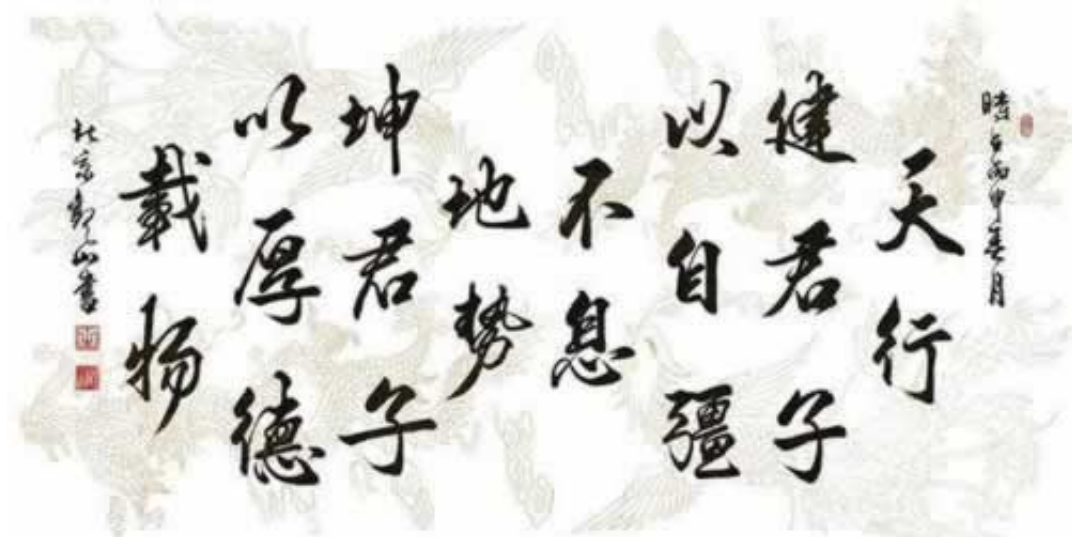 時在丙申春月
天行
健君子
以自彊
不息
地势
坤君子
以厚德
載物
北京郁山書